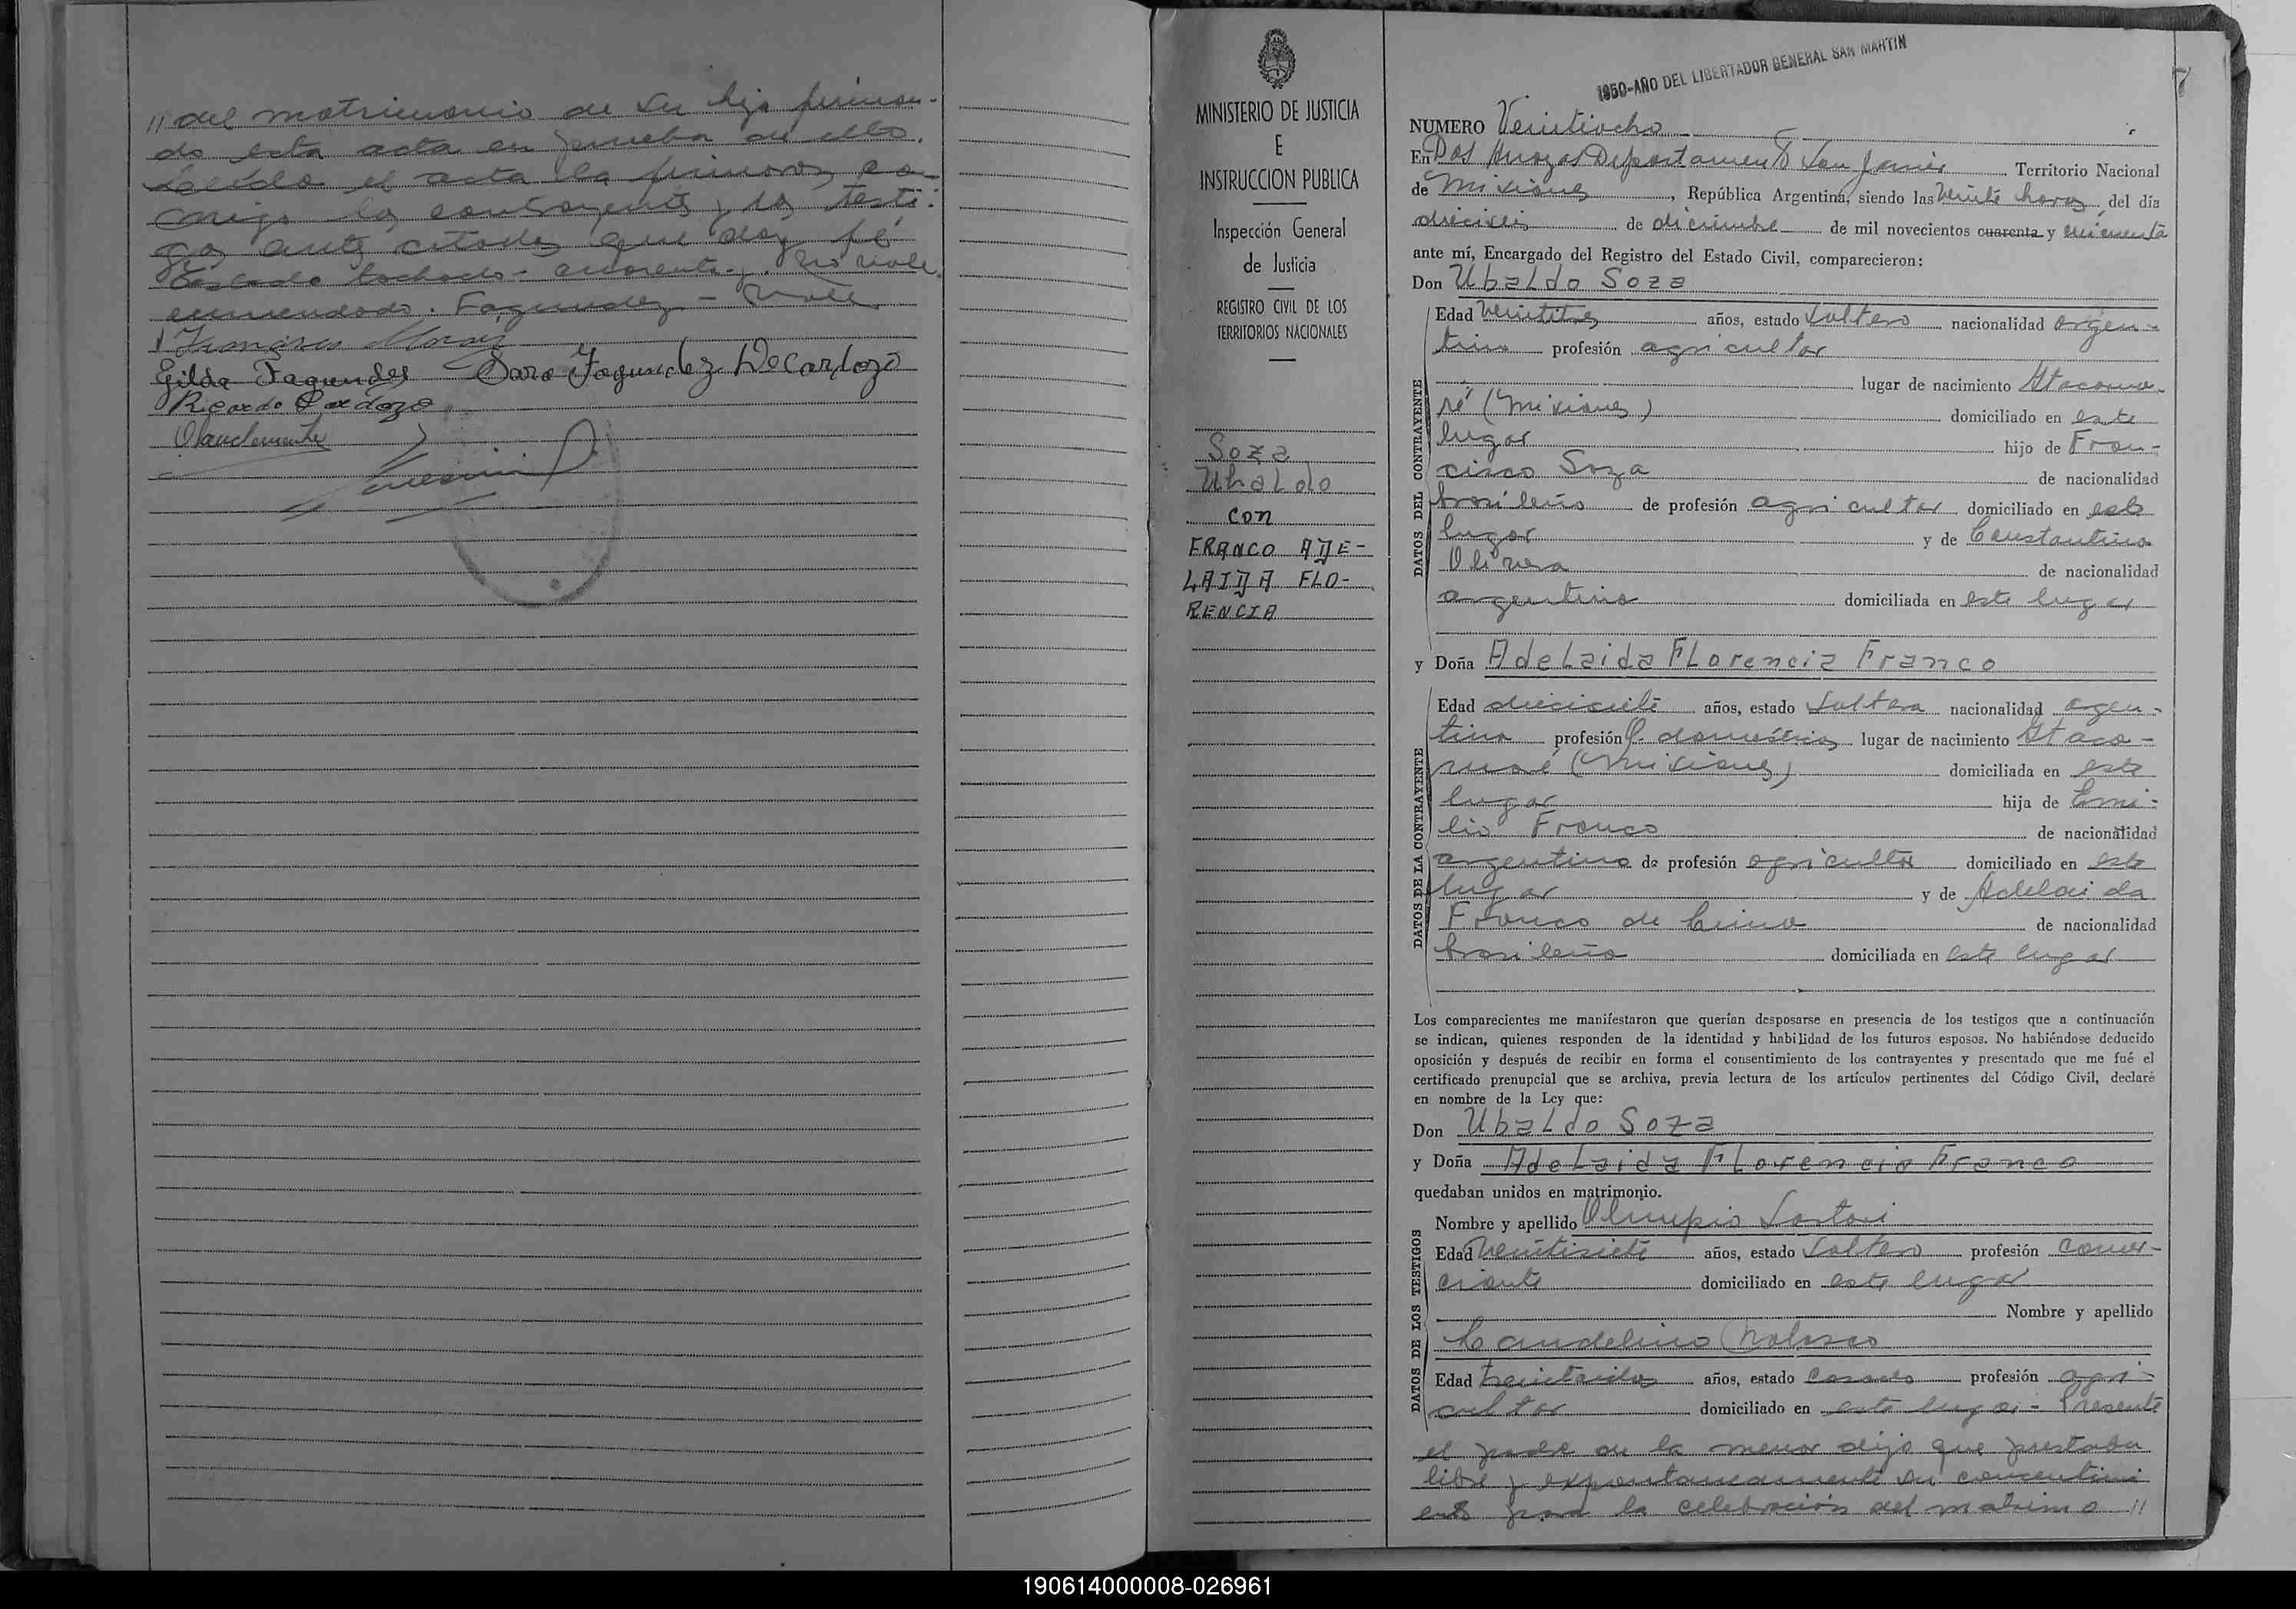 // del matrimonio de su hija firman-
do esta acta en prueba de ello.
Leída el acta la firmaron con-
migo los contrayentes y los testi-
gos ante citados que doy fé
Testado tachado - cuarenta - no vale.
enmendado. Fagundez - Vale
Gilda Fagundes Sara Fagundez De Cardozo
Ricardo Cardozo
MINISTERIO DE JUSTICIA
E
INSTRUCCION PUBLICA
Inspección General
de Justicia
REGISTRO CIVIL DE LOS
TERRITORIOS NACIONALES
Soza
Ubaldo
con
FRANCO ADE-
LAIDA FLO-
RENCIA
1950-AÑO DEL LIBERTADOR GENERAL SAN MARTIN
7
NUMERO Veintiocho
En Dos Arroyos Departamento San Javier Territorio Nacional
de Misiones, República Argentina, siendo las veinte horas, del día
dieciseis de diciembre de mil novecientos cuarenta y cincuenta
ante mí, Encargado del Registro del Estado Civil, comparecieron:
Don Ubaldo Soza
Edad veintitres años, estado soltero nacionalidad argen-
tino profesión agricultor
lugar de nacimiento Itacarua-
ré (Misiones) domiciliado en este
lugar hijo de Fran-
cisco Soza de nacionalidad
brasileño de profesión agricultor domiciliado en este
lugar y de Constantina
Olivera de nacionalidad
argentina domiciliada en este lugar
DATOS DEL CONTRAYENTE
y Doña Adelaida Florencia Franco
Edad diecisiete años, estado soltera nacionalidad argen-
tina profesión Q. domésticos lugar de nacimiento Itaca-
ruaré (Misiones) domiciliada en este
lugar hija de Emi-
lio Franco de nacionalidad
argentino de profesión agricultor domiciliado en este
lugar y de Adelaida
Franco de de nacionalidad
brasileña domiciliada en este lugar
DATOS DE LA CONTRAYENTE
Los comparecientes me manifestaron que querían desposarse en presencia de los testigos que a continuación
se indican, quienes responden de la identidad y habilidad de los futuros esposos. No habiéndose deducido
oposición y después de recibir en forma el consentimiento de los contrayentes y presentado que me fué el
certificado prenupcial que se archiva, previa lectura de los artículos pertinentes del Código Civil, declaré
en nombre de la Ley que:
Don Ubaldo Soza
y Doña Adelaida Florencia Franco
quedaban unidos en matrimonio.
Nombre y apellido Olimpio Sartori
Edad veintisiete años, estado soltero profesión comer-
ciante domiciliado en este lugar
Nombre y apellido
Candelino
Edad treintaidos años, estado Casado profesión agri-
cultor domiciliado en este lugar - Presente
DATOS DE LOS TESTIGOS
el padre de la menor dijo que prestaba
libre y expontaneamente su consentimi
ento para la celebración del matrimo //
190614000008-026961